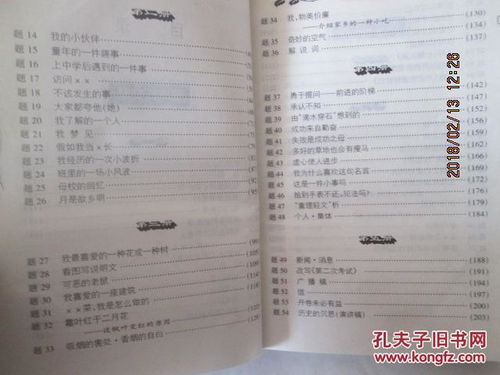 第二册
题 14 我的小伙伴
题 15 童年的一件睡事
题 16 上中学后遇到的一件事
题 17 访问××
题 18 不该发生的事
题 19 大家都夸他(她)
题 20 我了解的一个人
题 21 我梦见
题 22 假如我当×长
题 23 我经历的一次小波折
题 24 班里的一场小风波
题 25 母校的回忆
题 26 月是故乡明
第三册
题 27 我最喜爱的一种花或一种树
题 28 看图写说明文
题 29 可恶的老鼠
题 30 我喜爱的一座建筑
题 31 ××菜,我是怎么做的
题 32 霜叶红于二月花
——谈枫叶变红的原因
题 33 吸烟的害处·香烟的自白
题 34 我,物美价廉
——介绍家乡的一种小吃 (130)
题 35 奇妙的空气 (134)
题 36 解说词 (137)
第四册
题 37 勇于提问——前进的阶梯 (142)
题 38 承认不知 (145)
题 39 由“滴水穿石”想到的
题 40 成功来自勤奋
题 41 失败是成功之母
题 42 多好的草地也会有瘦马
题 43 虚心使人进步 (162)
题 44 我为什么喜欢这句名言 (167)
题 45 这是一件小事吗 (171)
题 46 拾到手表不还,犯法吗? (174)
题 47 “重理轻文”析 (179)
题 48 个人·集体 (184)
题 49 新闻·消息 (188)
题 50 改写《第二次考试》 (191)
题 51 广播稿 (195)
题 52 信 (197)
题 53 开卷未必有益 (200)
题 54 历史的沉思(演讲稿) (203)
2016/02/13 12:26
孔夫子旧书网
www.kongfz.com